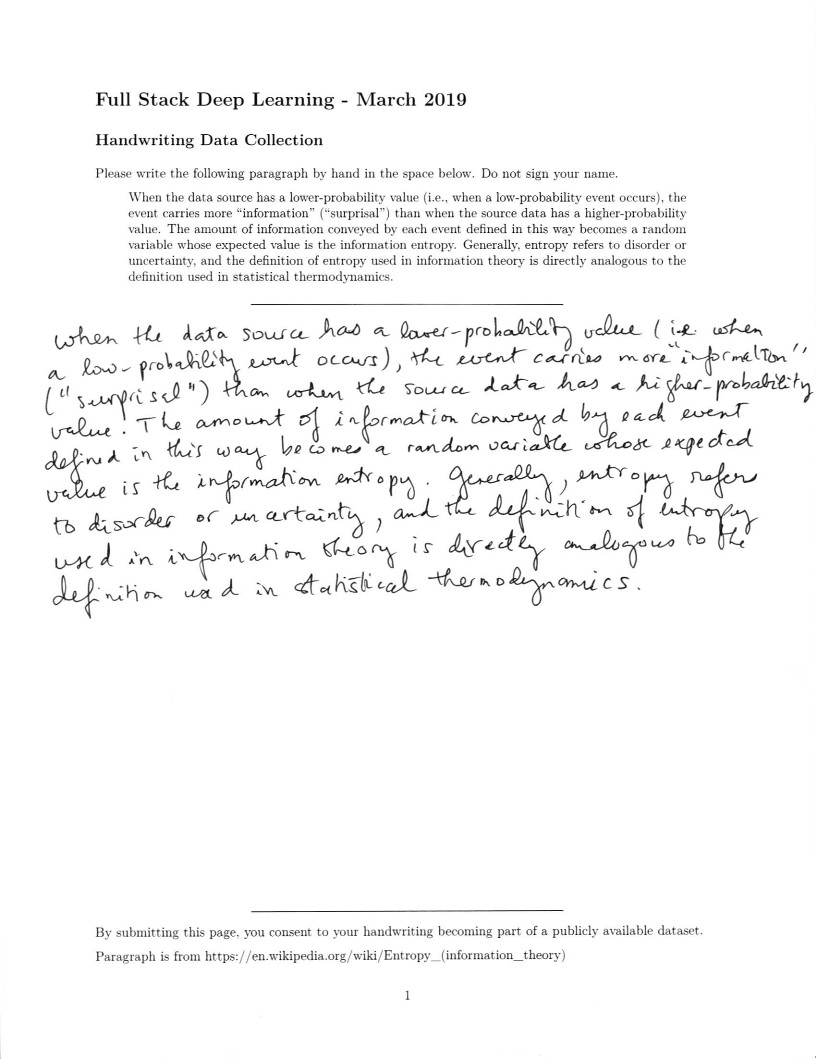 Full Stack Deep Learning - March 2019
Handwriting Data Collection
Please write the following paragraph by hand in the space below. Do not sign your name.
When the data source has a lower-probability value (i.e., when a low-probability event occurs), the
event carries more “information” (“surprisal”) than when the source data has a higher-probability
value. The amount of information conveyed by each event defined in this way becomes a random
variable whose expected value is the information entropy. Generally, entropy refers to disorder or
uncertainty, and the definition of entropy used in information theory is directly analogous to the
definition used in statistical thermodynamics.
when the data source has a lower-probability value (i.e. when
a low-probability event occurs), the event carries more "information"
("surprisal") than when the source data has a higher-probability
value. The amount of information conveyed by each event
defined in this way becomes a random variable whose expected
value is the information entropy. Generally, entropy refers
to disorder or uncertainty, and the definition of entropy
used in information theory is directly analogous to the
definition used in statistical thermodynamics.
By submitting this page, you consent to your handwriting becoming part of a publicly available dataset.
Paragraph is from https://en.wikipedia.org/wiki/Entropy_(information_theory)
1